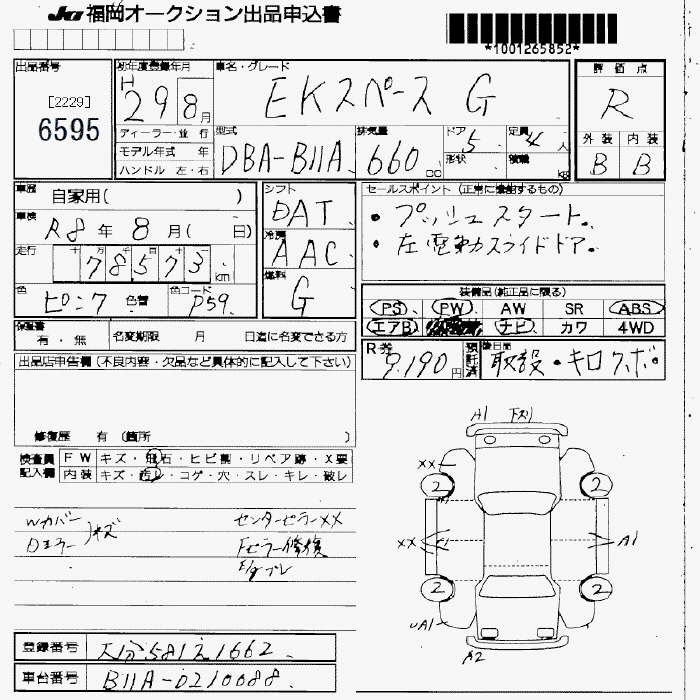 JU 福岡オークション出品申込書
*1001265852*
出品番号
[2229]
6595
初年度登録年月
H 29 8月
車名・グレード
EKスペース G
評価点
R
外装 内装
B B
ディーラー・並 行
モデル年式 年
ハンドル 左・右
型式
DBA-B11A
排気量
660 cc
ドア 5
形状
定員 4人
積載 kg
車歴
自家用( )
車検
R8年 8月( 日)
走行
十 万 千 百 十 一
78573 km
色
ピンク 色替
色コード
P59
シフト
DAT
冷房
AAC
燃料
G
セールスポイント (正常に機能するもの)
・プッシュスタート.
・左電動スライドドア.
装備品(純正品に限る)
PS PW AW SR ABS
エアB ナビ カワ 4WD
保証書
有・無
名変期限 月 日迄に名変できる方
R券
9,190円
預託済
後日回
取説・キロクボ.
出品店申告欄 (不良内容・欠品など具体的に記入して下さい)
修復歴 有 (箇所 )
検査員
記入欄
FW キズ・飛石・ヒビ割・リペア跡・X要
内装 キズ・汚レ・コゲ・穴・スレ・キレ・破レ
Wカバー
Dミラー キズ
センターピラーXX
Fピラー修復
A1 Fス1
XX
2 2
XX A1
2 2
UA1
A2
登録番号
大分581え1662
車台番号
B11A-0210088